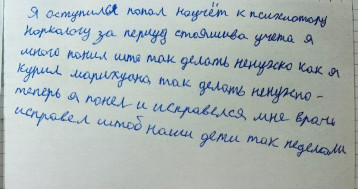 Я оступился попал научёт к психиатору
норкологу за период стояшива учета я
много понил што так делать ненужно как я
курил марихуана так делать ненужно -
теперь я понел и исправелся мне врачь
исправел штоб наши дети так неделали